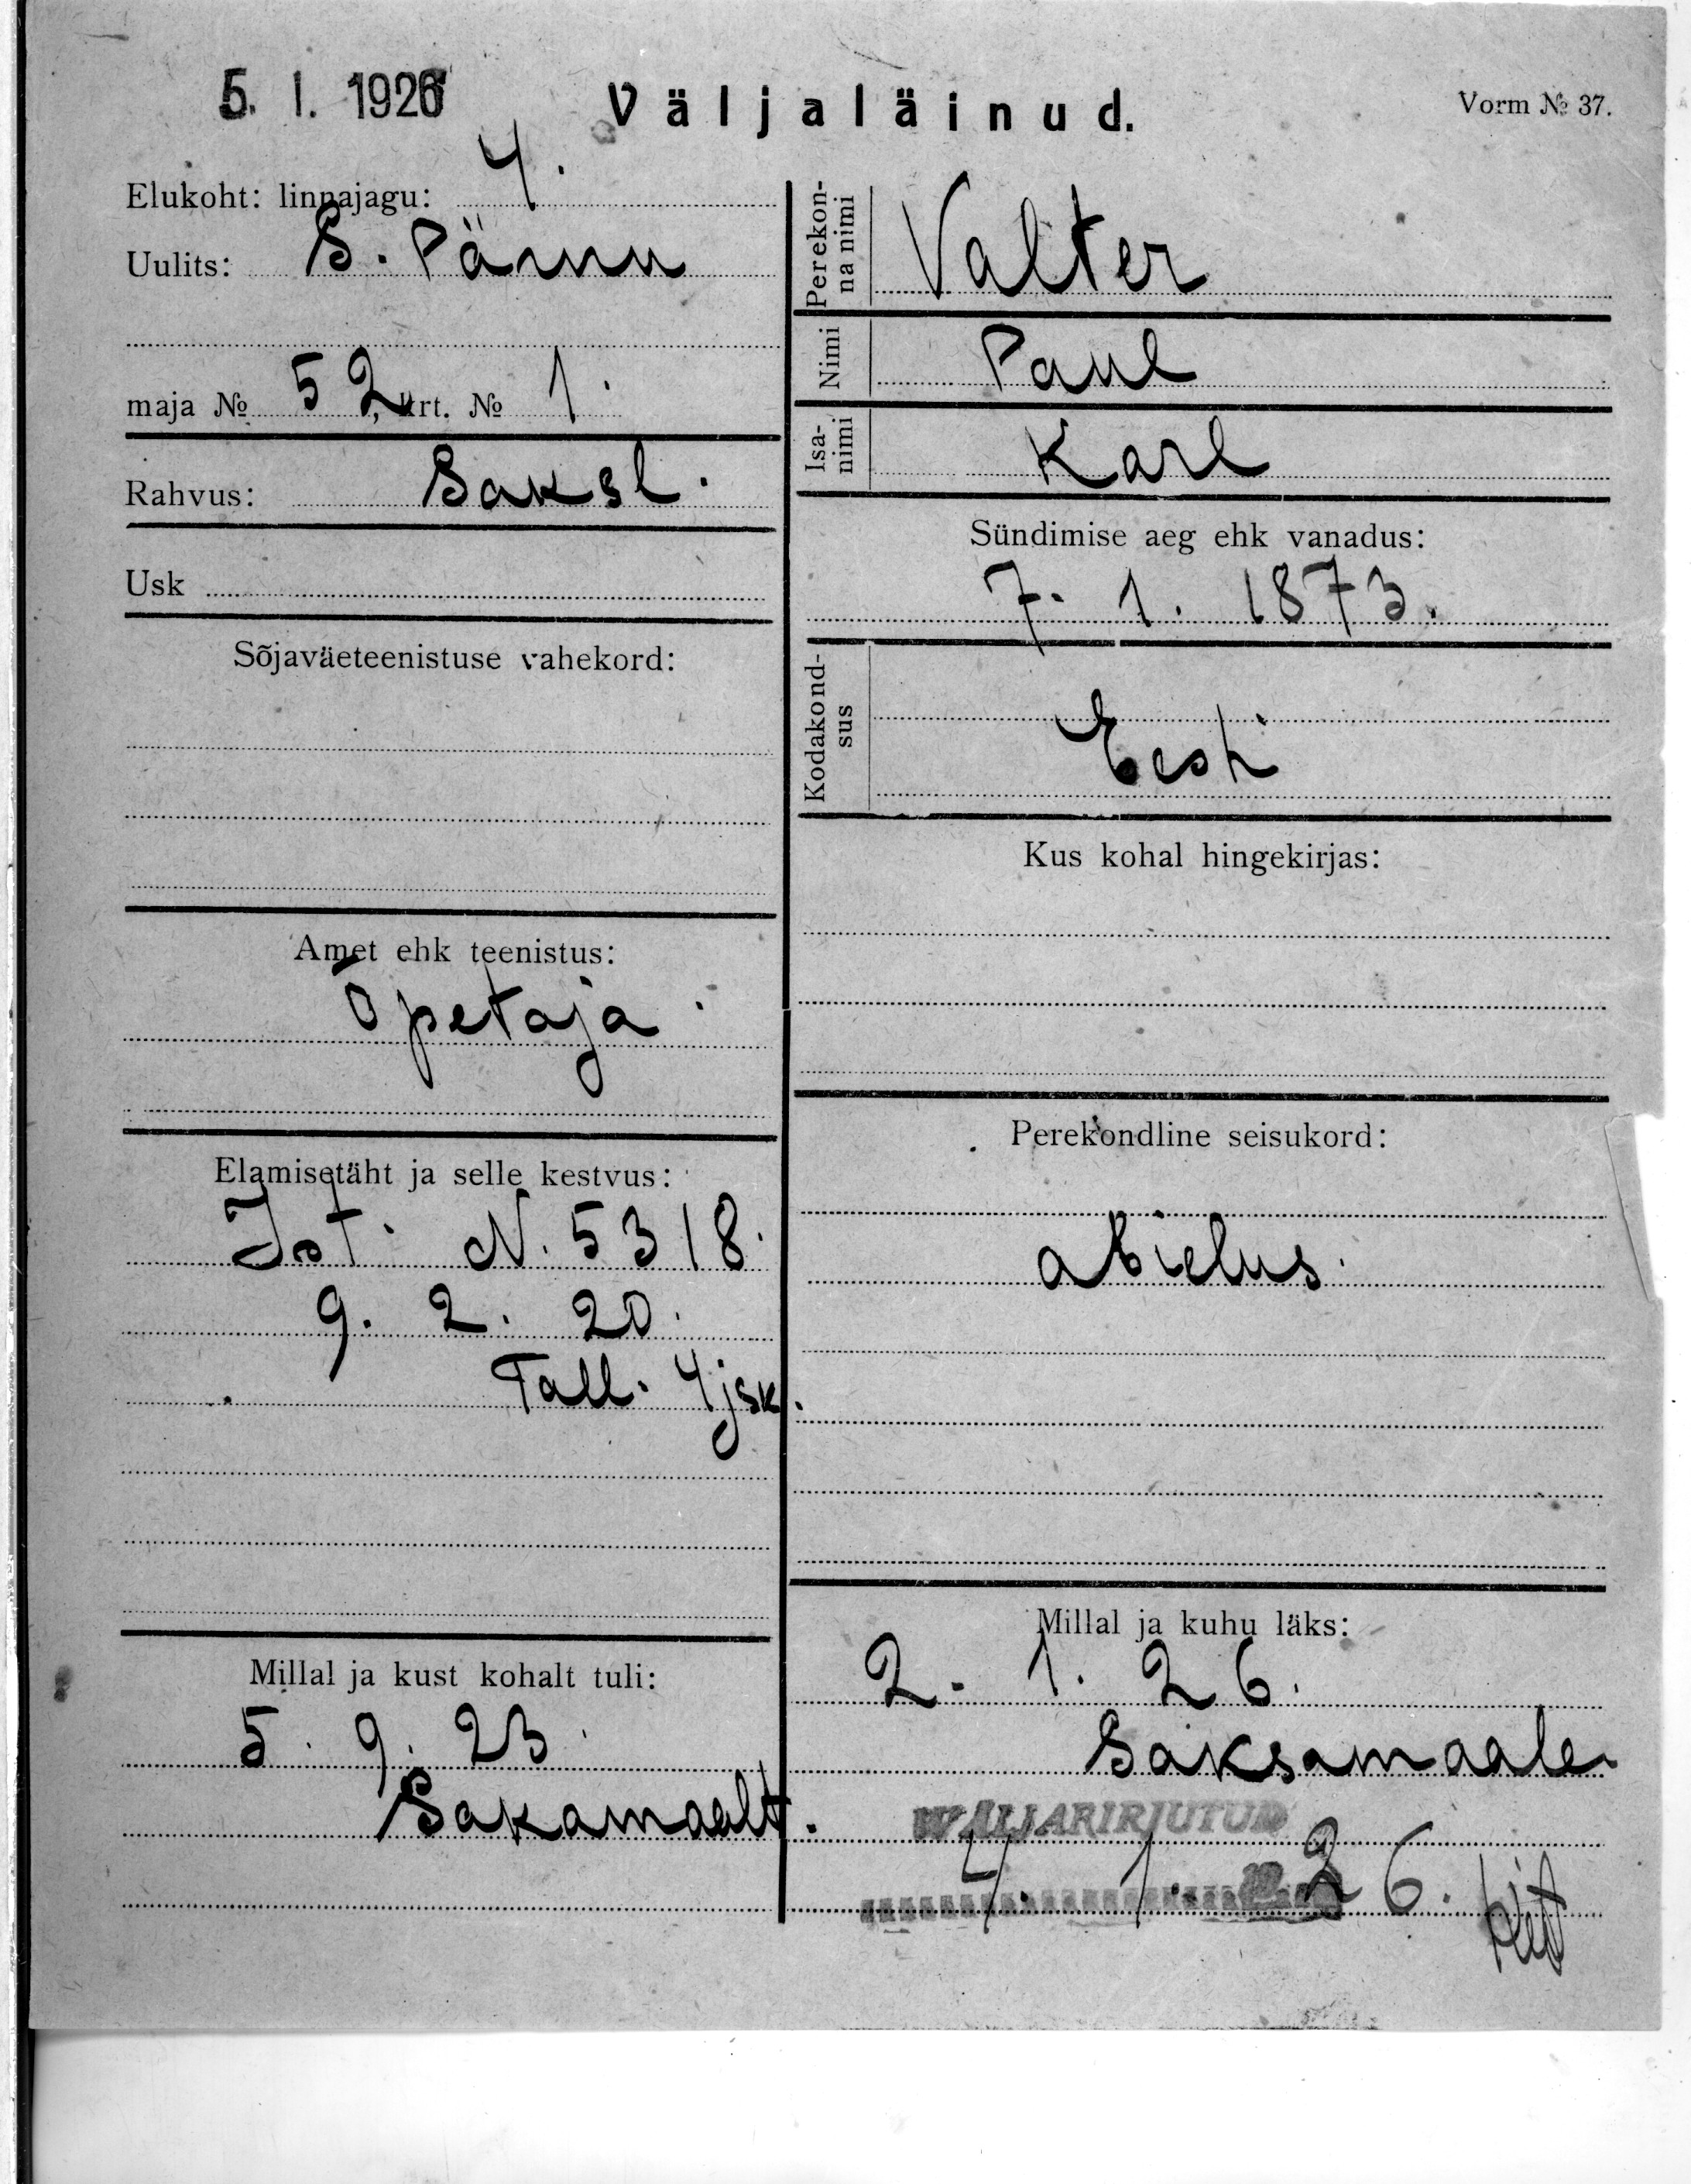 5. I. 1926
Väljaläinud.
Vorm № 37.
Elukoht: linnajagu: 4.
Uulits: S. Pärnu
maja № 52, krt. № 1.
Rahvus: Saksl.
Usk
Sõjaväeteenistuse vahekord:
Amet ehk teenistus:
Õpetaja
Elamisetäht ja selle kestvus:
Ist. N. 5318.
9. 2. 20.
Tall. 4 jsk.
Millal ja kust kohalt tuli:
5. 9. 23.
Saksamaalt.
Perekonna nimi
Valter
Nimi
Paul
Isanimi
Karl
Sündimise aeg ehk vanadus:
7. 1. 1873.
Kodakondsus
Eesti
Kus kohal hingekirjas:
Perekondline seisukord:
abielus.
Millal ja kuhu läks:
2. 1. 26.
Saksamaale
WÄLJAKIRJUTUD
4. 1. 26.